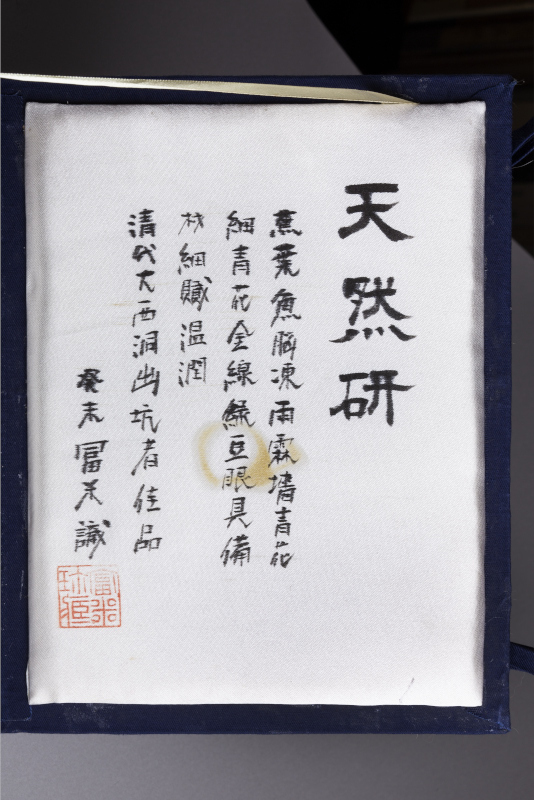 天然研
蕉葉魚腦凍雨霖墻青花
細青花全線綠豆眼具備
材細膩温潤
清代大西洞出坑者佳品
癸未冨米識
富米